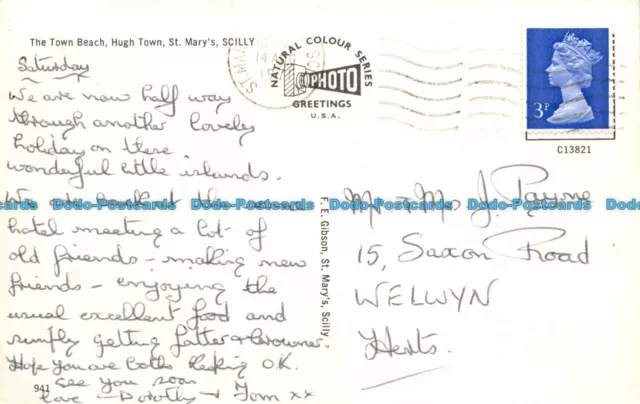 The Town Beach, Hugh Town, St. Mary's, SCILLY
Saturday
We are now half way
through another lovely
holiday on these
wonderful little islands.
We are back at the same
hotel meeting a lot of
old friends - making new
friends - enjoying the
usual excellent food and
simply getting fatter & browner.
Hope you are both keeping O.K.
See you soon
love - Dorothy & Tom xx
941
NATURAL COLOUR SERIES
PHOTO
GREETINGS
U.S.A.
3P
C13821
F. E. Gibson, St. Mary's, Scilly
Mr & Mrs J. Payne
15, Saxon Road
WELWYN
Herts.
Dodo-Postcards Dodo-Postcards Dodo-Postcards Dodo-Postcards Dodo-Postcards Dodo-Postcards